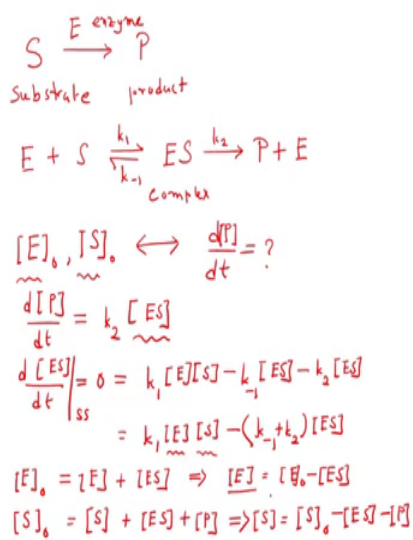 E enzyme
S ⟶ P
Substrate product
E + S ⇌ ES ⟶ P + E
k₁ k₋₁ k₂
complex
[E]₀ , [S]₀ ⟷ d[P]/dt = ?
d[P]/dt = k₂ [ES]
d[ES]/dt |ss = 0 = k₁[E][S] - k₋₁[ES] - k₂[ES]
= k₁[E][S] - (k₋₁+k₂)[ES]
[E]₀ = [E] + [ES] ⇒ [E] = [E]₀-[ES]
[S]₀ = [S] + [ES] + [P] ⇒ [S] = [S]₀-[ES]-[P]